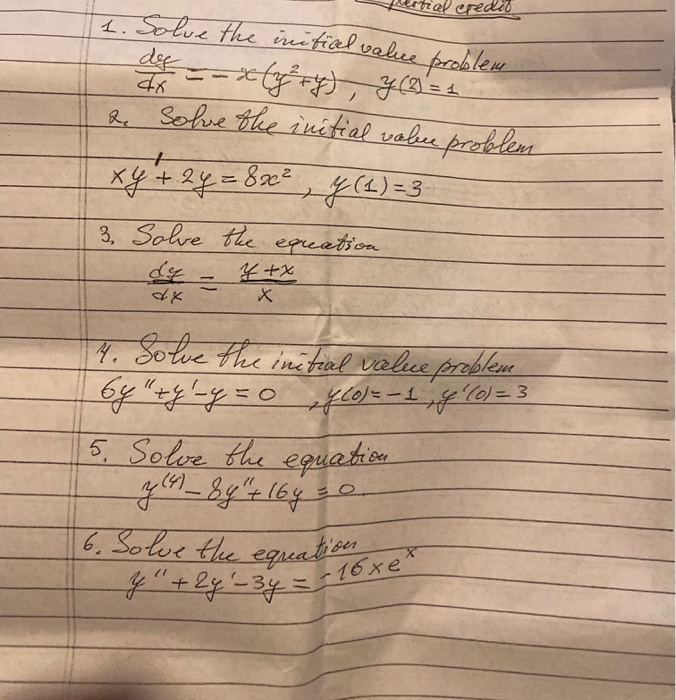 partial credit
1. Solve the initial value problem
dy/dx = - x(y²+y), y(2) = 1
2. Solve the initial value problem
xy' + 2y = 8x², y(1)=3
3. Solve the equation
dy/dx = y+x/x
4. Solve the initial value problem
6y"+y'-y=0, y(0)=-1, y'(0)=3
5. Solve the equation
y⁽⁴⁾-8y"+16y=0.
6. Solve the equation
y"+2y'-3y=-16xeˣ